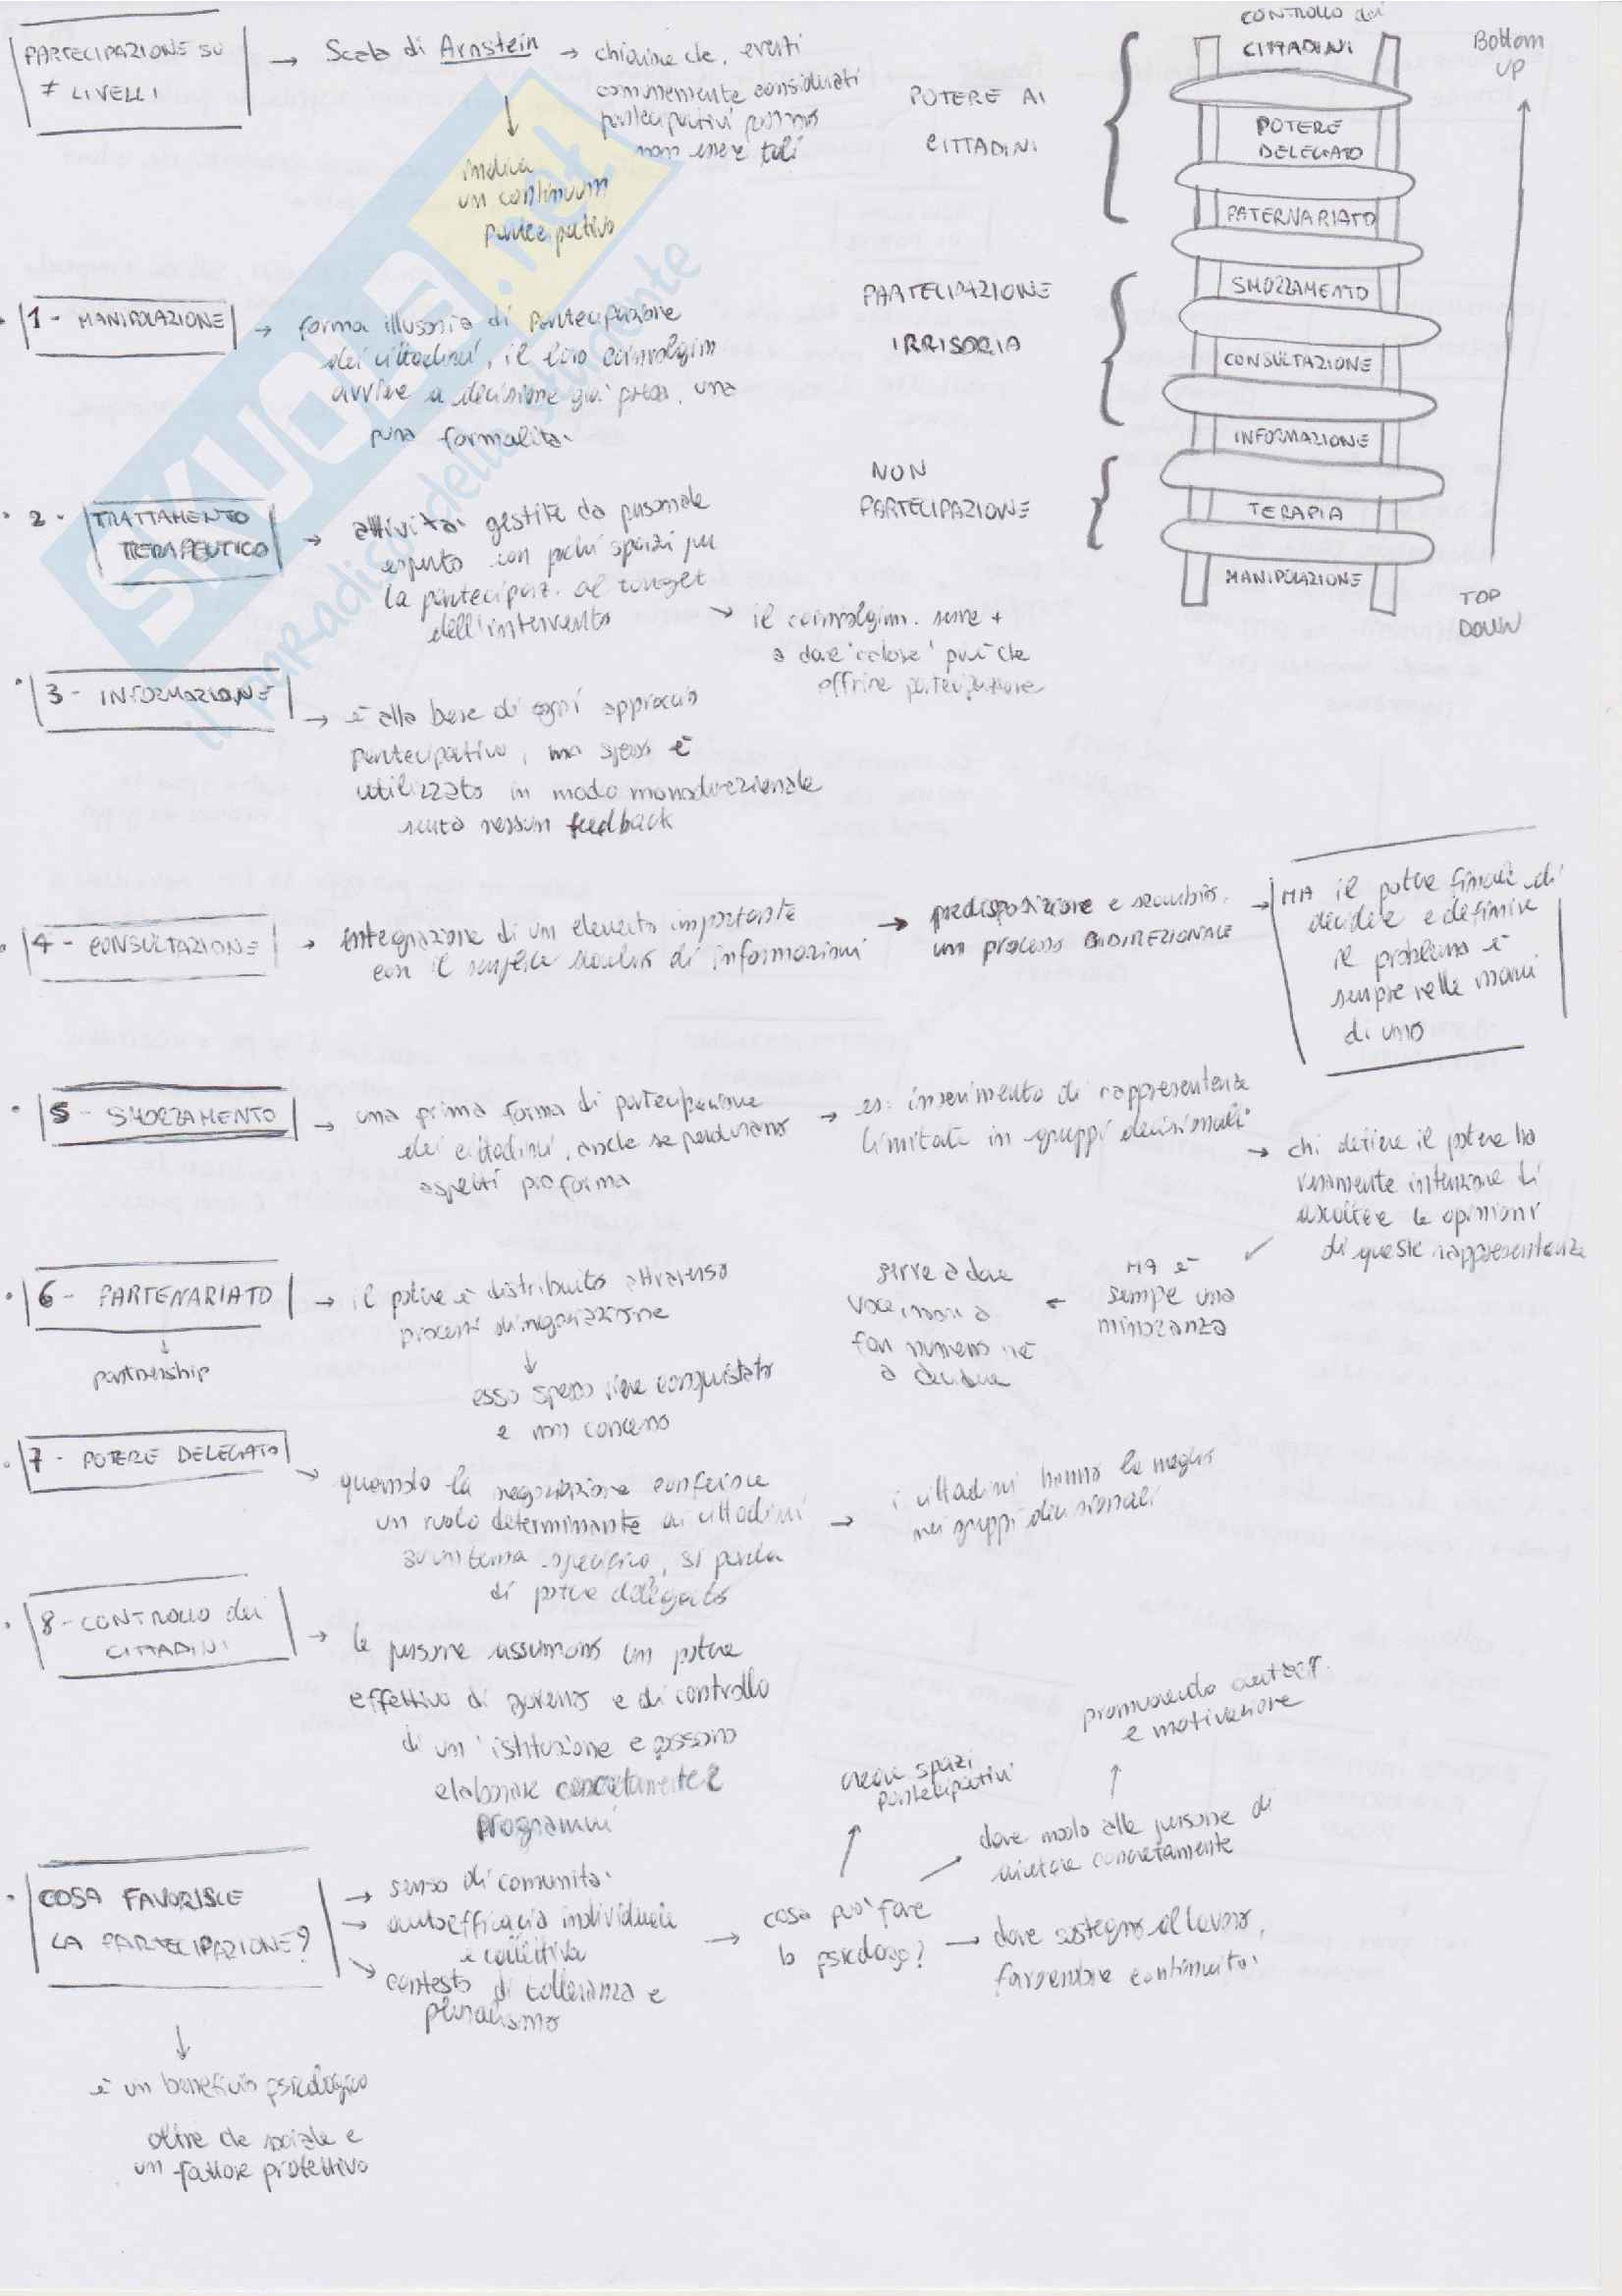 PARTECIPAZIONE SU
≠ LIVELLI
→ Scala di Arnstein → chiarisce che, eventi
comunemente considerati
partecipativi possono
non essere tali
↓
indica
un continuum
partecipativo
POTERE AI
CITTADINI
PARTECIPAZIONE
IRRISORIA
NON
PARTECIPAZIONE
CONTROLLO dei
CITTADINI
POTERE
DELEGATO
PATERNARIATO
SMORZAMENTO
CONSULTAZIONE
INFORMAZIONE
TERAPIA
MANIPOLAZIONE
Bottom
UP
TOP
DOWN
1 - MANIPOLAZIONE → forma illusoria di partecipazione
dei cittadini, il loro coinvolgim
avviene a decisione già presa, una
pura formalità.
2 - TRATTAMENTO
TERAPEUTICO
→ attività gestite da personale
esperto con pochi spazi per
la partecipaz. al target
dell'intervento
→ il coinvolgim. serve +
a dare 'calore' più che
offrire partecipazione
3 - INFORMAZIONE
→ è alla base di ogni approccio
partecipativo, ma spesso è
utilizzato in modo monodirezionale
senza nessun feedback
4 - CONSULTAZIONE → integrazione di un elemento importante
con il semplice scambio di informazioni
→ predisposizione e scambio,
un processo BIDIREZIONALE
→ MA il potere finale di
decidere e definire
il problema è
sempre nelle mani
di uno
5 - SMORZAMENTO → una prima forma di partecipazione
dei cittadini, anche se perdurano
aspetti proforma
→ es: inserimento di rappresentanze
limitate in gruppi decisionali
→ chi detiene il potere ha
veramente intenzione di
ascoltare le opinioni
di queste rappresentanze
MA è
sempre una
minoranza
←
serve a dare
voce non a
far numero né
a decidere
6 - PARTENARIATO → il potere è distribuito attraverso
processi di negoziazione
↓
partnership
↓
esso spesso viene conquistato
e non concesso
7 - POTERE DELEGATO
→ quando la negoziazione conferisce
un ruolo determinante ai cittadini
su un tema specifico, si parla
di potere delegato
→ i cittadini hanno la meglio
nei gruppi decisionali
8 - CONTROLLO dei
CITTADINI
→ le persone assumono un potere
effettivo di governo e di controllo
di un'istituzione e possono
elaborare concretamente
programmi
COSA FAVORISCE
LA PARTECIPAZIONE?
→ senso di comunità
→ autoefficacia individuale
e collettiva
→ contesto di tolleranza e
pluralismo
→ cosa può fare
lo psicologo?
creare spazi
partecipativi
dare modo alle persone di
aiutare concretamente
promuovendo autoeff.
e motivazione
→ dare sostegno al lavoro,
↓
è un beneficio psicologico
oltre che sociale e
un fattore protettivo
SKUOLA.net
il paradiso dello studente